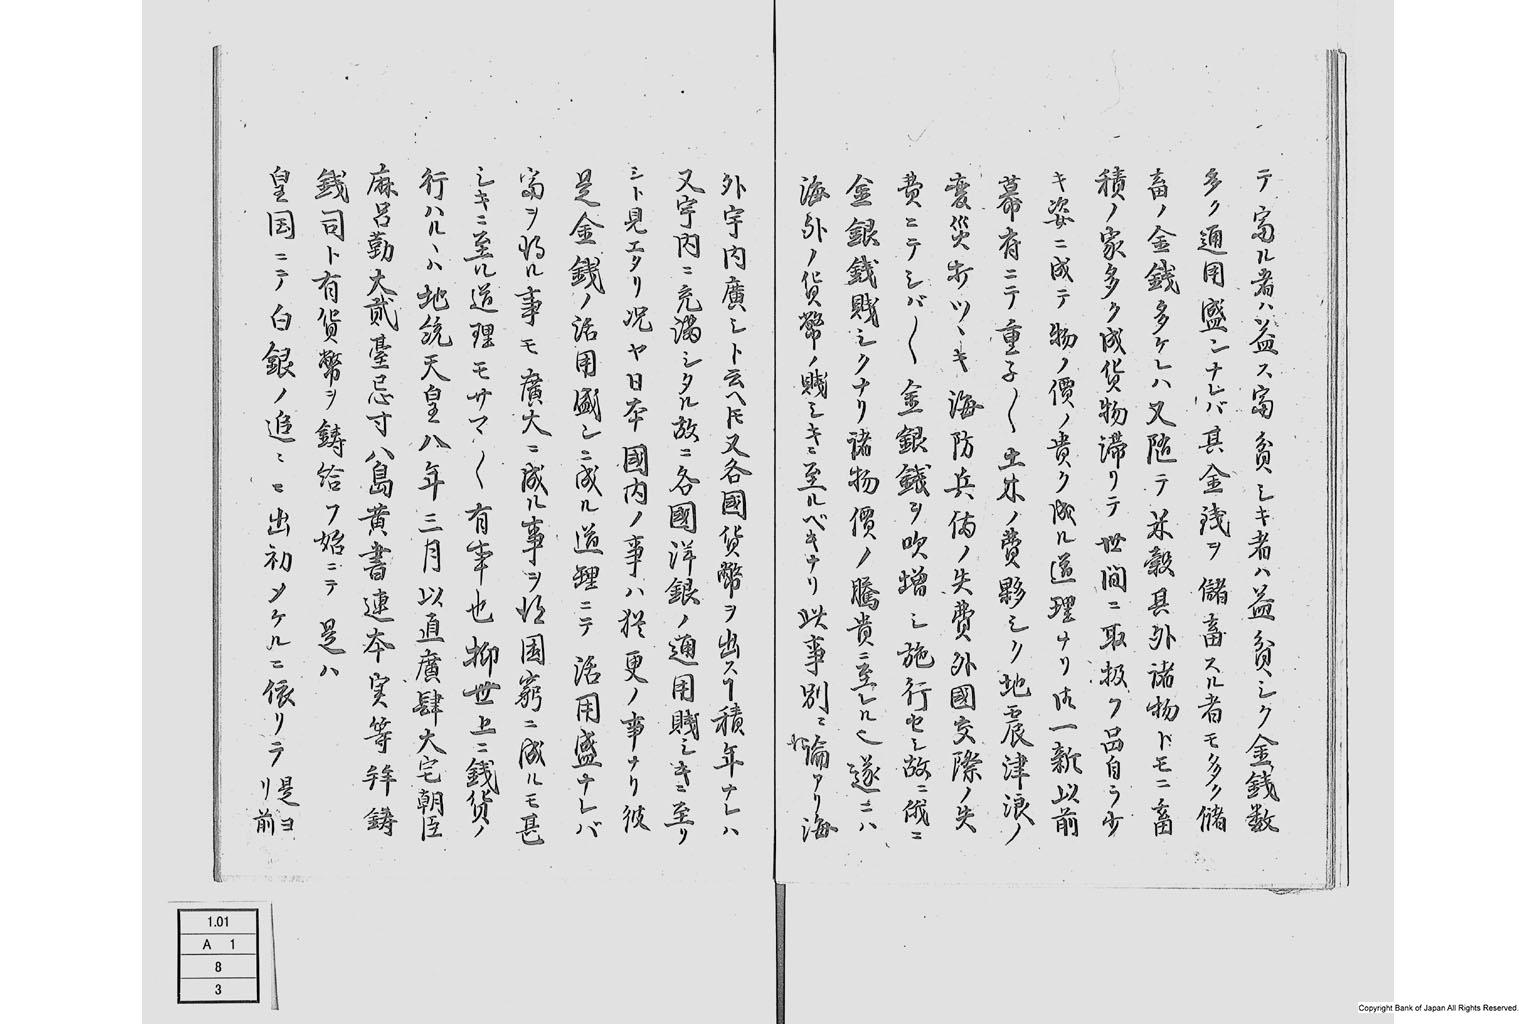 テ富ル者ハ益ス富貧シキ者ハ益貧シク金銭数
多ク通用盛ンナレバ其金銭ヲ儲畜スル者モ多ク儲
畜ノ金銭多ケレハ又随テ米穀其外諸物ドモニ畜
積ノ家多ク成貨物滞リテ世間ニ取扱フ品自ラ少
キ姿ニ成テ物ノ價ノ貴ク成ル道理ナリ御一新以前
幕府ニテ重子〱土木ノ費夥シク地震津浪ノ
変災打ツヽキ海防兵備ノ失費外國交際ノ失
費ニテシバ〱金銀銭ヲ吹増シ施行セシ故ニ俄ニ
金銀銭賤シクナリ諸物價ノ騰貴ニ至レル也遂ニハ
海外ノ貨幣ノ賤シキニ至ルベキナリ此事別ニ論アリ海
外宇内廣シト云ヘドモ又各國貨幣ヲ出ス事積年ナレハ
又宇内ニ充満シタル故ニ各國洋銀ノ通用賤シキニ至リ
シト見エタリ况ヤ日本國内ノ事ハ猶更ノ事ナリ彼
是金銭ノ活用盛ンニ成ル道理ニテ活用盛ナレバ
富ヲ得ル事モ廣大ニ成ル事ヲ得国窮ニ成ルモ甚
シキニ至ル道理モサマ〱有事也抑世上ニ銭貨ノ
行ハルヽハ地統天皇八年三月以直廣肆大宅朝臣
麻呂勤大貳臺忌寸八島黄書連本実等拝鋳
銭司ト有貨幣ヲ鋳給フ始ニテ是ハ
皇国ニテ白銀ノ追ニモ出初メケルニ依リテ是ヨ
リ前
1.01
A 1
8
3
Copyright Bank of Japan All Rights Reserved.